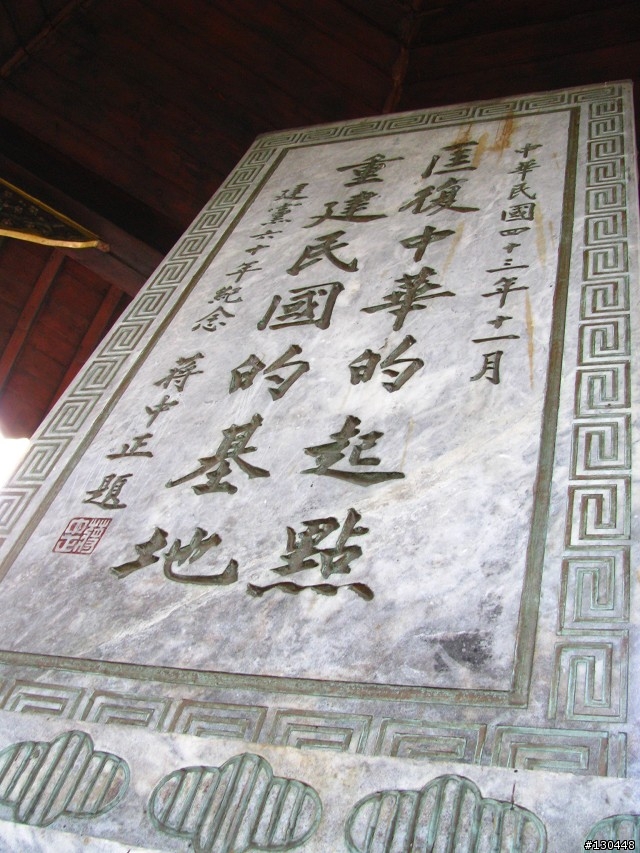 中華民國四十三年十一月
匡復中華的起點
重建民國的基地
建黨六十年紀念 蔣中正題
#130448